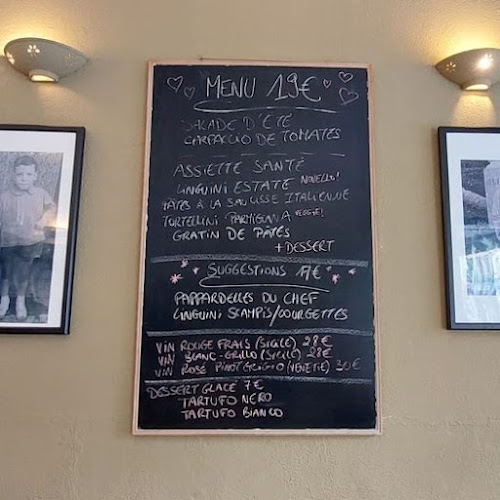 MENU 19€
SALADE D'ÉTÉ
CARPACCIO DE TOMATES
ASSIETTE SANTÉ
LINGUINI ESTATE NOVELLO!
PÂTES À LA SAUCISSE ITALIENNE
TORTELLINI PARMIGIANA VEGGIE!
GRATIN DE PÂTES
+ DESSERT
SUGGESTIONS 17€
PAPPARDELLES DU CHEF
LINGUINI SCAMPIS/COURGETTES
VIN ROUGE FRAIS (SICILE) 28€
VIN BLANC-GRILLO (SICILE) 28€
VIN ROSÉ PINOT GRIGIO (VENETIE) 30€
DESSERT GLACÉ 7€
TARTUFO NERO
TARTUFO BIANCO